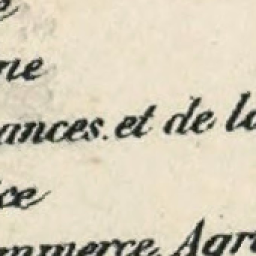 ne
ances. et de la
ice
mmerce, Agr